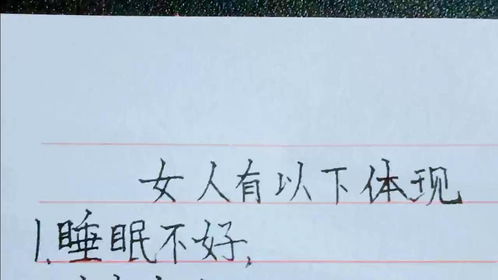 女人有以下体现
1.睡眠不好,